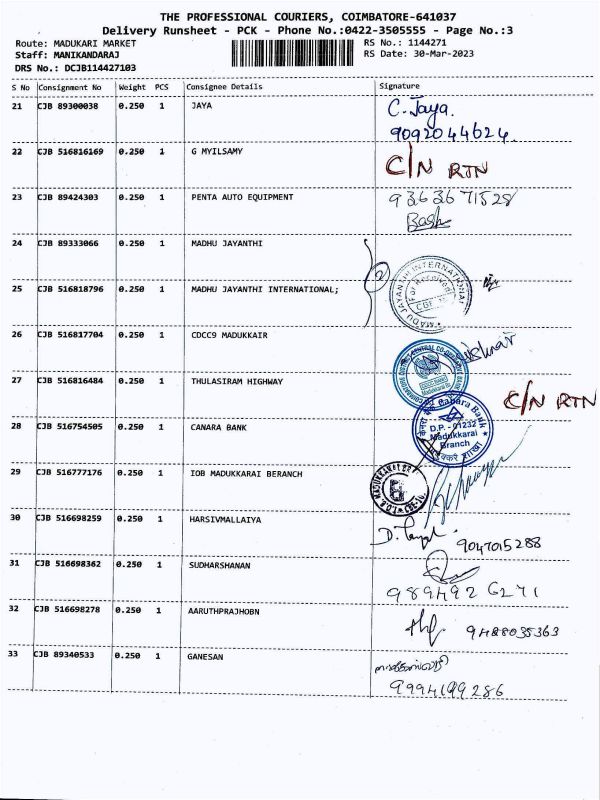 THE PROFESSIONAL COURIERS, COIMBATORE-641037
Delivery Runsheet - PCK - Phone No.:0422-3505555 - Page No.:3
Route: MADUKARI MARKET RS No.: 1144271
Staff: MANIKANDARAJ RS Date: 30-Mar-2023
DRS No.: DCJB114427103
S No Consignment No Weight PCS Consignee Details Signature
21 CJB 89300038 0.250 1 JAYA C. Jaya.
9092044624.
22 CJB 516816169 0.250 1 G MYILSAMY C/N RTN
23 CJB 89424303 0.250 1 PENTA AUTO EQUIPMENT 9363671528
24 CJB 89333066 0.250 1 MADHU JAYANTHI
2
25 CJB 516818796 0.250 1 MADHU JAYANTHI INTERNATIONAL; MADU JAYANTHI INTERNATIONAL
For Received
26 CJB 516817704 0.250 1 CDCC9 MADUKKAIR
27 CJB 516816484 0.250 1 THULASIRAM HIGHWAY C/N RTN
28 CJB 516754505 0.250 1 CANARA BANK Canara Bank
D.P. - 01232
Madukkarai
Branch
29 CJB 516777176 0.250 1 IOB MADUKKARAI BERANCH
30 CJB 516698259 0.250 1 HARSIVMALLAIYA 9047015288
31 CJB 516698362 0.250 1 SUDHARSHANAN
9894926271
32 CJB 516698278 0.250 1 AARUTHPRAJHOBN 9488035363
33 CJB 89340533 0.250 1 GANESAN
9994199286